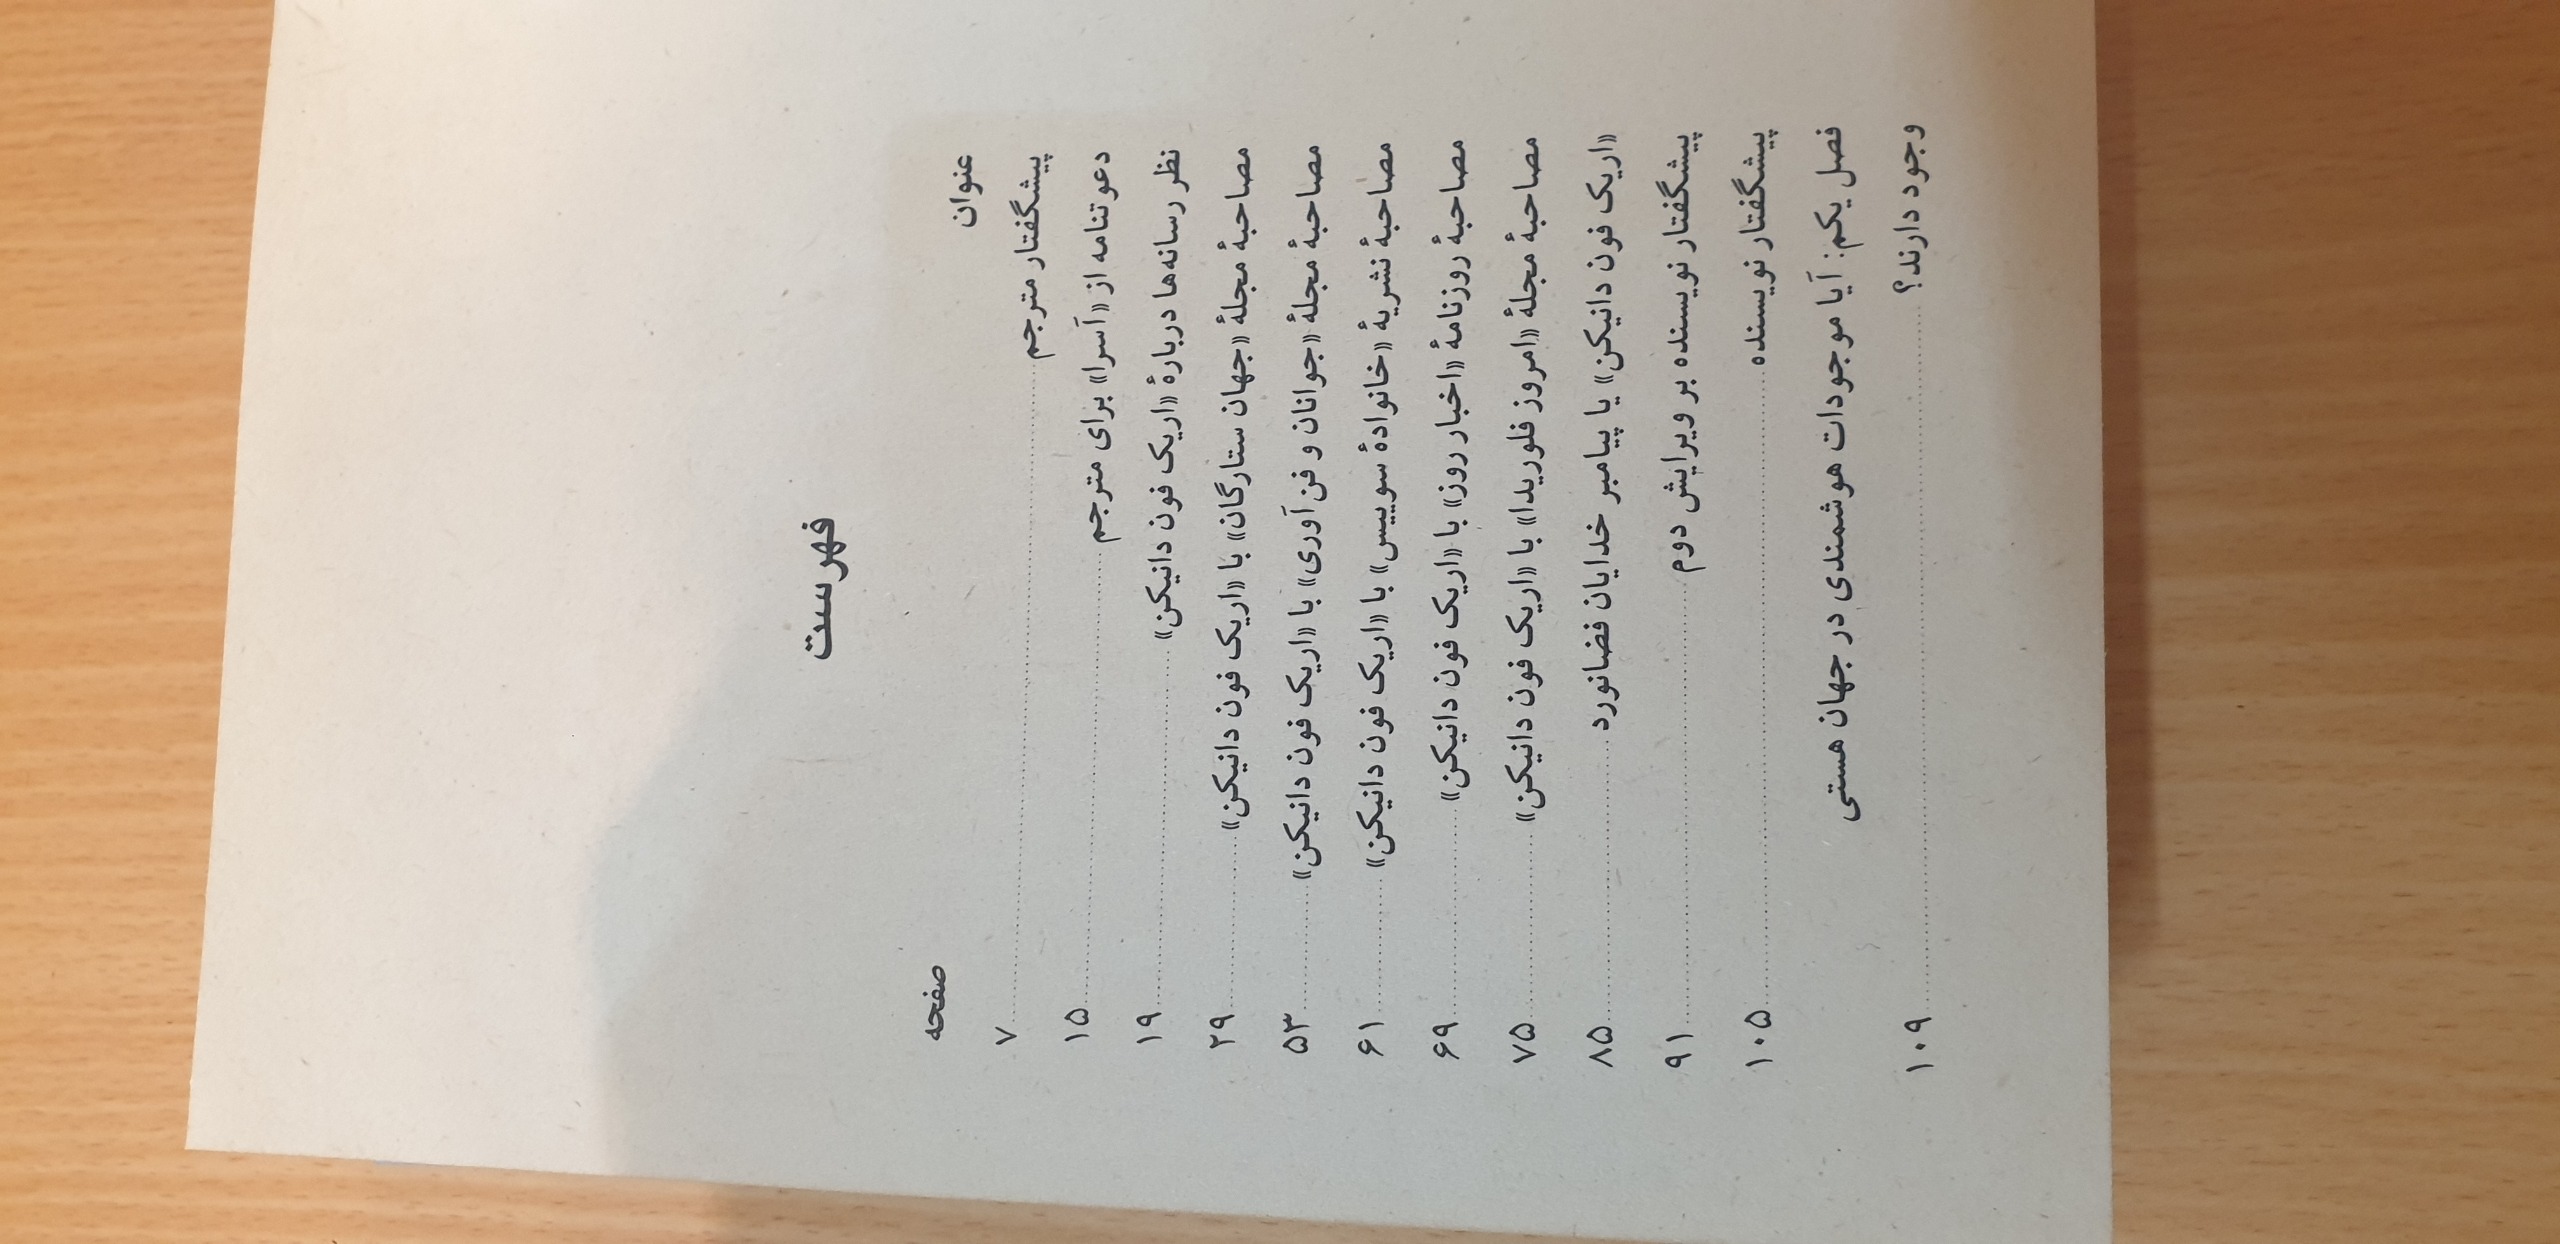 فهرست
عنوان صفحه
پیشگفتار مترجم ........ ۷
دعوتنامه از «آسرا» برای مترجم ........ ۱۵
نظر رسانه‌ها دربارهٔ «اریک فون دانیکن» ........ ۱۹
مصاحبهٔ مجلهٔ «جهان ستارگان» با «اریک فون دانیکن» ........ ۲۹
مصاحبهٔ مجلهٔ «جوانان و فن‌آوری» با «اریک فون دانیکن» ........ ۵۳
مصاحبهٔ نشریهٔ «خانوادهٔ سوییس» با «اریک فون دانیکن» ........ ۶۱
مصاحبهٔ روزنامهٔ «اخبار روز» با «اریک فون دانیکن» ........ ۶۹
مصاحبهٔ مجلهٔ «امروز فلوریدا» با «اریک فون دانیکن» ........ ۷۵
«اریک فون دانیکن» یا پیامبر خدایان فضانورد ........ ۸۵
پیشگفتار نویسنده بر ویرایش دوم ........ ۹۱
پیشگفتار نویسنده ........ ۱۰۵
فصل یکم: آیا موجودات هوشمندی در جهان هستی
وجود دارند؟ ........ ۱۰۹